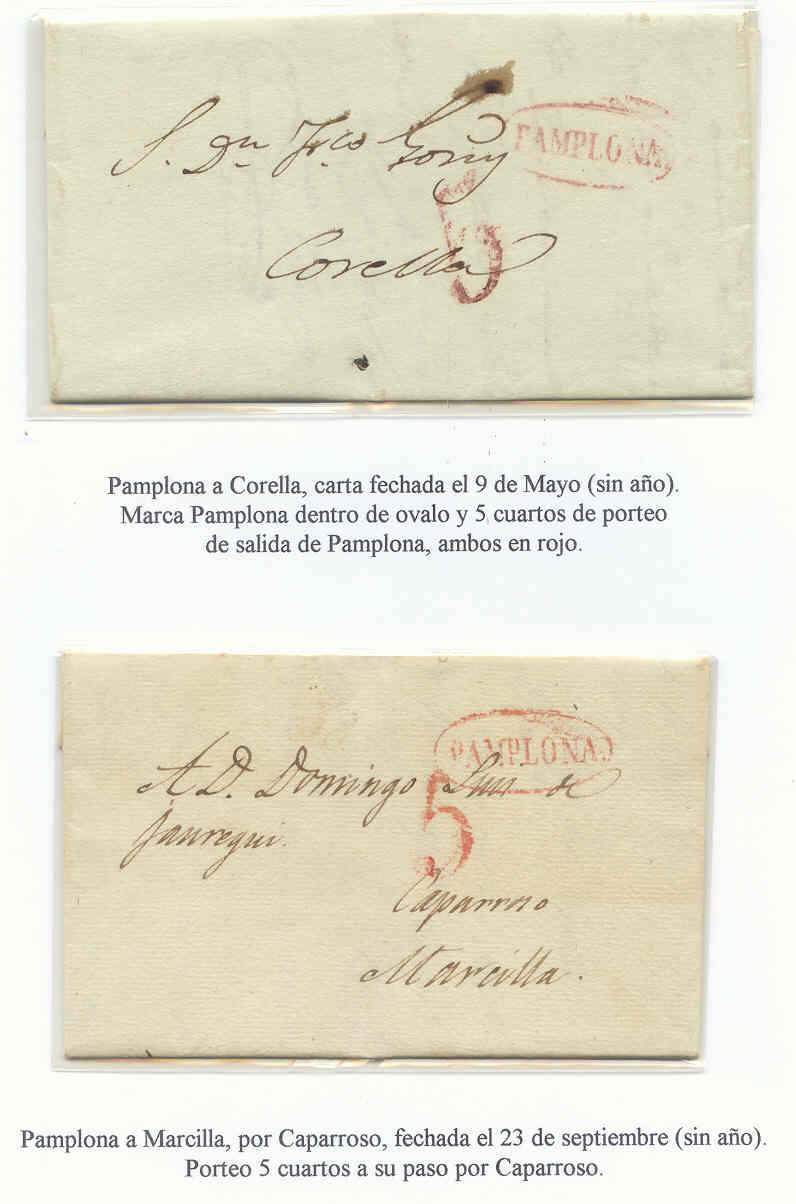 PAMPLONA
S. Dn Frco Goñy
5
Corella
Pamplona a Corella, carta fechada el 9 de Mayo (sin año).
Marca Pamplona dentro de ovalo y 5 cuartos de porteo
de salida de Pamplona, ambos en rojo.
PAMPLONA
A D. Domingo Luis de
Jauregui.
5
Caparroso
Marcilla.
Pamplona a Marcilla, por Caparroso, fechada el 23 de septiembre (sin año).
Porteo 5 cuartos a su paso por Caparroso.